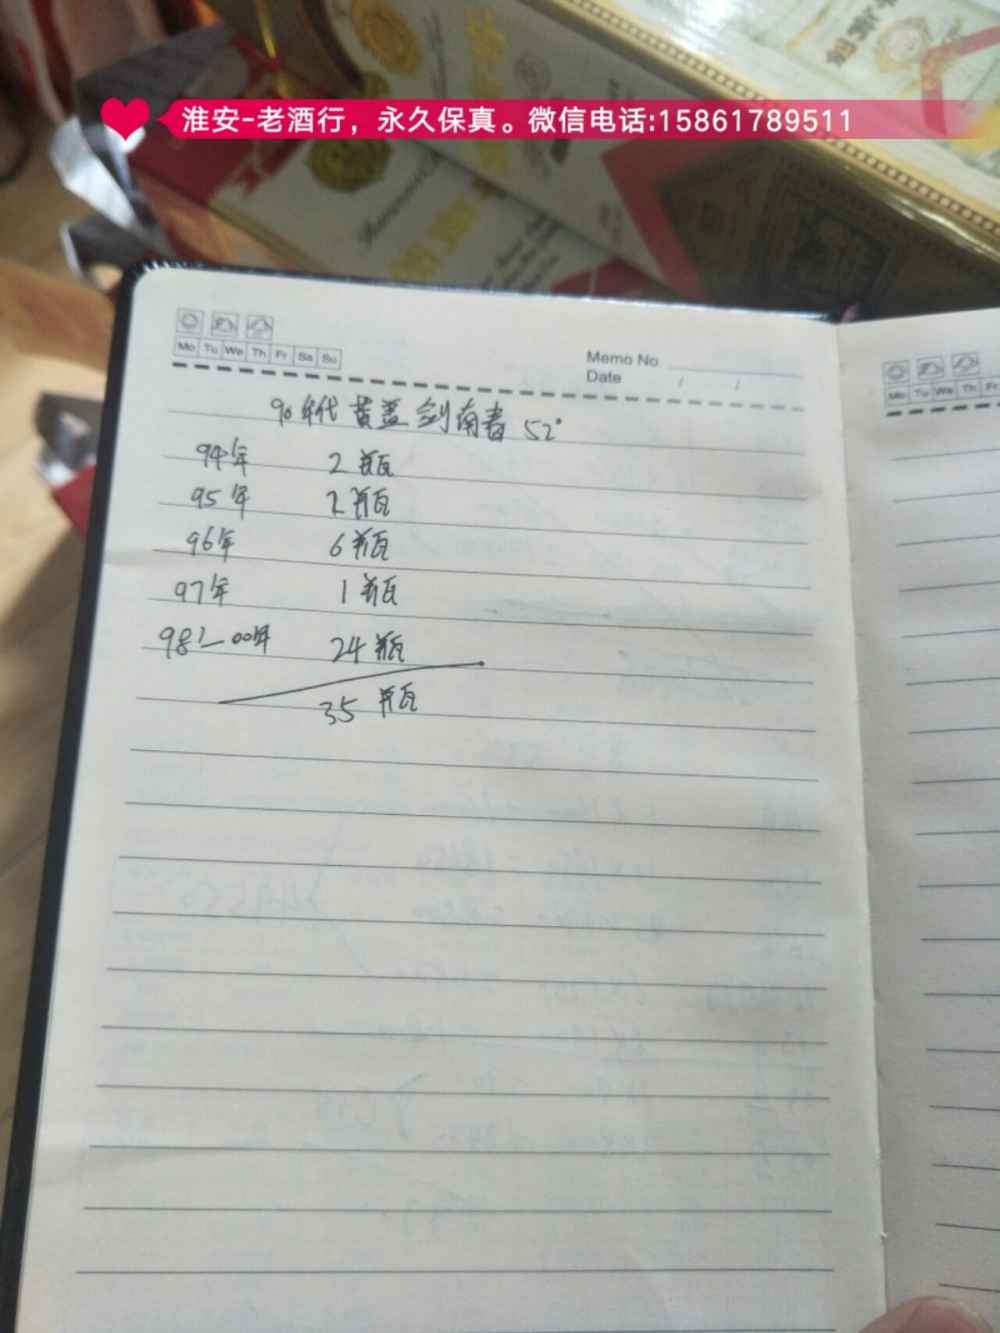 淮安-老酒行，永久保真。微信电话:15861789511
Mo Tu We Th Fr Sa Su
Memo No.
Date / /
90年代黄盖剑南春 52°
94年 2瓶
95年 2瓶
96年 6瓶
97年 1瓶
98年—00年 24瓶
35瓶
Mo Tu We Th